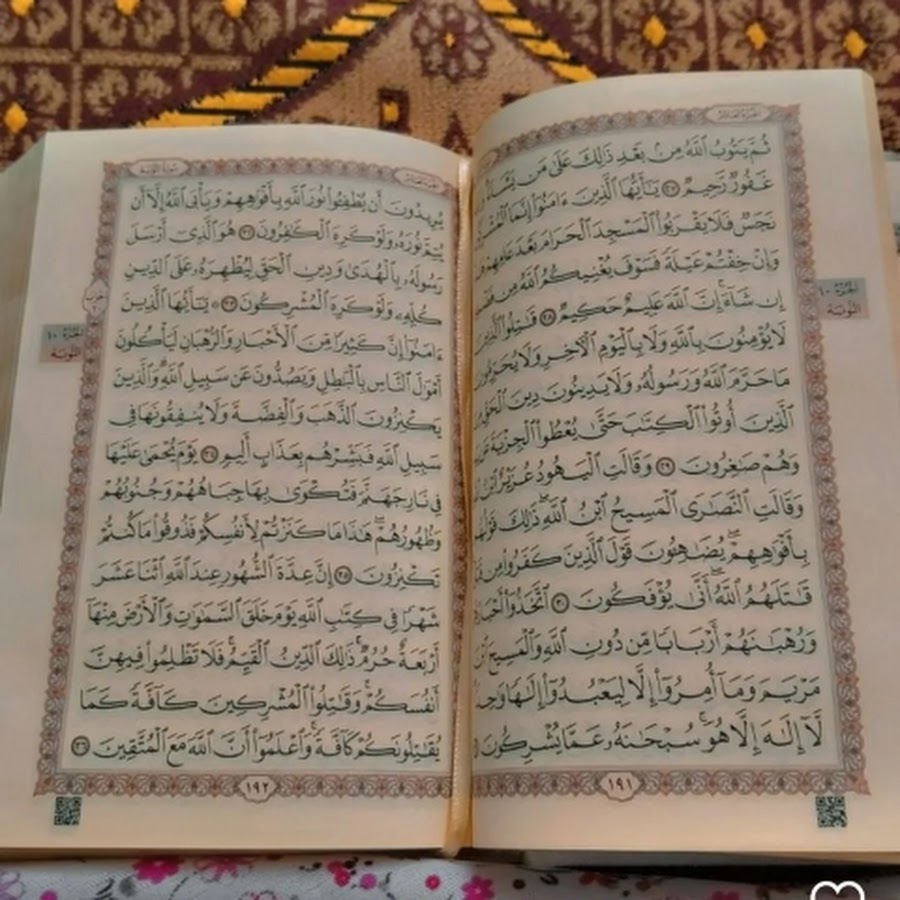 الجزء العاشر
ثُمَّ يَتُوبُ ٱللَّهُ مِنۢ بَعْدِ ذَٰلِكَ عَلَىٰ مَن يَشَآءُ
غَفُورٌ رَّحِيمٌ ٢٧ يَـٰٓأَيُّهَا ٱلَّذِينَ ءَامَنُوٓا۟ إِنَّمَا
نَجَسٌ فَلَا يَقْرَبُوا۟ ٱلْمَسْجِدَ ٱلْحَرَامَ بَعْدَ عَامِهِمْ
وَإِنْ خِفْتُمْ عَيْلَةً فَسَوْفَ يُغْنِيكُمُ ٱللَّهُ مِن
إِن شَآءَ ۚ إِنَّ ٱللَّهَ عَلِيمٌ حَكِيمٌ ٢٨ قَـٰتِلُوا۟ ٱلَّذِينَ
لَا يُؤْمِنُونَ بِٱللَّهِ وَلَا بِٱلْيَوْمِ ٱلْـَٔاخِرِ وَلَا يُحَرِّمُونَ
مَا حَرَّمَ ٱللَّهُ وَرَسُولُهُۥ وَلَا يَدِينُونَ دِينَ ٱلْحَقِّ
ٱلَّذِينَ أُوتُوا۟ ٱلْكِتَـٰبَ حَتَّىٰ يُعْطُوا۟ ٱلْجِزْيَةَ
وَهُمْ صَـٰغِرُونَ ٢٩ وَقَالَتِ ٱلْيَهُودُ عُزَيْرٌ ٱبْنُ
وَقَالَتِ ٱلنَّصَـٰرَى ٱلْمَسِيحُ ٱبْنُ ٱللَّهِ ۖ ذَٰلِكَ
بِأَفْوَٰهِهِمْ ۖ يُضَـٰهِـُٔونَ قَوْلَ ٱلَّذِينَ كَفَرُوا۟ مِن
قَـٰتَلَهُمُ ٱللَّهُ ۚ أَنَّىٰ يُؤْفَكُونَ ٣٠ ٱتَّخَذُوٓا۟
وَرُهْبَـٰنَهُمْ أَرْبَابًا مِّن دُونِ ٱللَّهِ وَٱلْمَسِيحَ
مَرْيَمَ وَمَآ أُمِرُوٓا۟ إِلَّا لِيَعْبُدُوٓا۟ إِلَـٰهًا
لَّآ إِلَـٰهَ إِلَّا هُوَ ۚ سُبْحَـٰنَهُۥ عَمَّا يُشْرِكُونَ
١٩١
الجزء ١٠
التوبة
الجزء العاشر
سورة التوبة
يُرِيدُونَ أَن يُطْفِـُٔوا۟ نُورَ ٱللَّهِ بِأَفْوَٰهِهِمْ وَيَأْبَى ٱللَّهُ إِلَّآ أَن
يُتِمَّ نُورَهُۥ وَلَوْ كَرِهَ ٱلْكَـٰفِرُونَ ٣٢ هُوَ ٱلَّذِىٓ أَرْسَلَ
رَسُولَهُۥ بِٱلْهُدَىٰ وَدِينِ ٱلْحَقِّ لِيُظْهِرَهُۥ عَلَى ٱلدِّينِ
كُلِّهِۦ وَلَوْ كَرِهَ ٱلْمُشْرِكُونَ ٣٣ ۞ يَـٰٓأَيُّهَا ٱلَّذِينَ
ءَامَنُوٓا۟ إِنَّ كَثِيرًا مِّنَ ٱلْأَحْبَارِ وَٱلرُّهْبَانِ لَيَأْكُلُونَ
أَمْوَٰلَ ٱلنَّاسِ بِٱلْبَـٰطِلِ وَيَصُدُّونَ عَن سَبِيلِ ٱللَّهِ ۗ وَٱلَّذِينَ
يَكْنِزُونَ ٱلذَّهَبَ وَٱلْفِضَّةَ وَلَا يُنفِقُونَهَا فِى
سَبِيلِ ٱللَّهِ فَبَشِّرْهُم بِعَذَابٍ أَلِيمٍ ٣٤ يَوْمَ يُحْمَىٰ عَلَيْهَا
فِى نَارِ جَهَنَّمَ فَتُكْوَىٰ بِهَا جِبَاهُهُمْ وَجُنُوبُهُمْ
وَظُهُورُهُمْ ۖ هَـٰذَا مَا كَنَزْتُمْ لِأَنفُسِكُمْ فَذُوقُوا۟ مَا كُنتُمْ
تَكْنِزُونَ ٣٥ إِنَّ عِدَّةَ ٱلشُّهُورِ عِندَ ٱللَّهِ ٱثْنَا عَشَرَ
شَهْرًا فِى كِتَـٰبِ ٱللَّهِ يَوْمَ خَلَقَ ٱلسَّمَـٰوَٰتِ وَٱلْأَرْضَ مِنْهَآ
أَرْبَعَةٌ حُرُمٌ ۚ ذَٰلِكَ ٱلدِّينُ ٱلْقَيِّمُ ۚ فَلَا تَظْلِمُوا۟ فِيهِنَّ
أَنفُسَكُمْ ۚ وَقَـٰتِلُوا۟ ٱلْمُشْرِكِينَ كَآفَّةً كَمَا
يُقَـٰتِلُونَكُمْ كَآفَّةً ۚ وَٱعْلَمُوٓا۟ أَنَّ ٱللَّهَ مَعَ ٱلْمُتَّقِينَ ٣٦
١٩٢
الجزء ١٠
التوبة